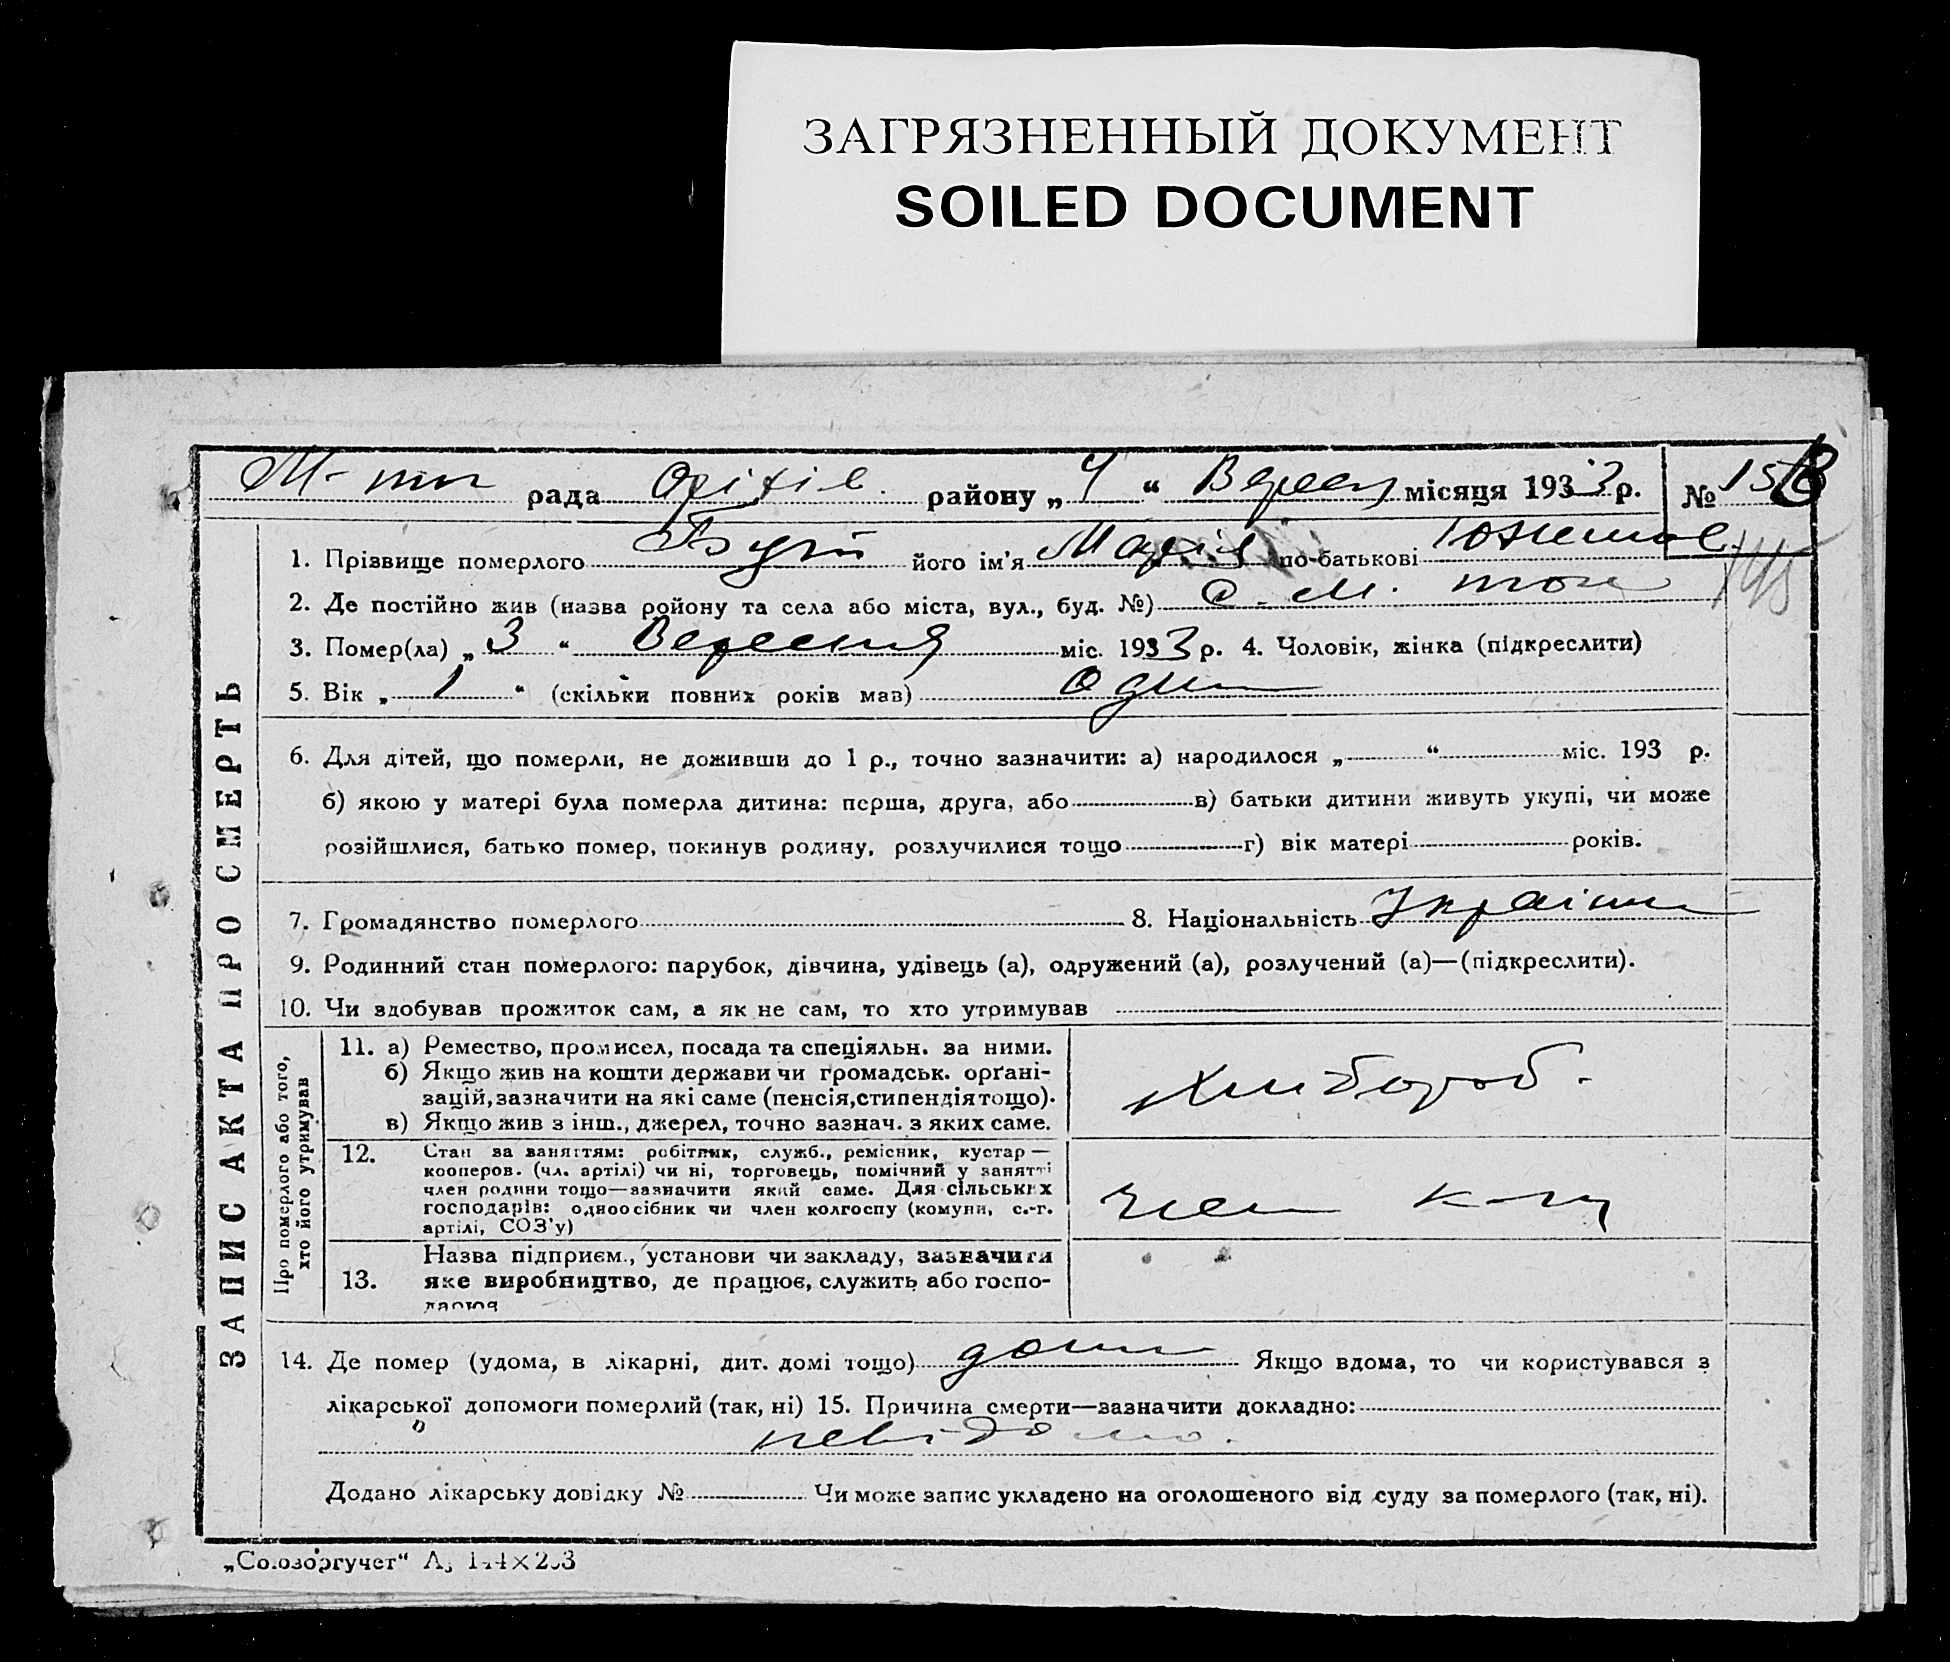 ЗАГРЯЗНЕННЫЙ ДОКУМЕНТ
SOILED DOCUMENT
рада Оріхів. району „ 4 “ Вересн місяця 1933 р. №
1. Прізвище померлого його ім'я Марія по-батькові
2. Де постійно жив (назва району та села або міста, вул., буд. №) С. М. ток
3. Помер(ла) „ 3 “ Вересня міс. 1933 р. 4. Чоловік, жінка (підкреслити)
5. Вік „ 1 “ (скільки повних років мав) Один
6. Для дітей, що померли, не доживши до 1 р., точно зазначити: а) народилося „ “ міс. 193 р.
б) якою у матері була померла дитина: перша, друга, або в) батьки дитини живуть укупі, чи може
розійшлися, батько помер, покинув родину, розлучилися тощо г) вік матері років.
7. Громадянство померлого 8. Національність Україн
9. Родинний стан померлого: парубок, дівчина, удівець (а), одружений (а), розлучений (а)—(підкреслити).
10. Чи здобував прожиток сам, а як не сам, то хто утримував
ЗАПИС АКТА ПРО СМЕРТЬ
Про померлого або того,
хто його утримував
11. а) Ремество, промисел, посада та спеціяльн. за ними.
б) Якщо жив на кошти держави чи громадськ. орґані-
зацій, зазначити на які саме (пенсія, стипендія тощо).
в) Якщо жив з інш., джерел, точно зазнач. з яких саме.
Хлібороб.
12. Стан за заняттям: робітник, служб., ремісник, кустар —
кооперов. (чл. артілі) чи ні, торговець, помічний у занятті
член родини тощо—зазначити який саме. Для сільських
господарів: одноосібник чи член колгоспу (комуни, с.-г.
артілі, СОЗ'у)
член к-гу
13. Назва підприєм., установи чи закладу, зазначити
яке виробництво, де працює, служить або госпо-
дарює
14. Де помер (удома, в лікарні, дит. домі тощо) дома Якщо вдома, то чи користувався з
лікарської допомоги померлий (так, ні) 15. Причина смерти—зазначити докладно:
невідомо.
Додано лікарську довідку № Чи може запис укладено на оголошеного від суду за померлого (так, ні).
„Союзоргучет“